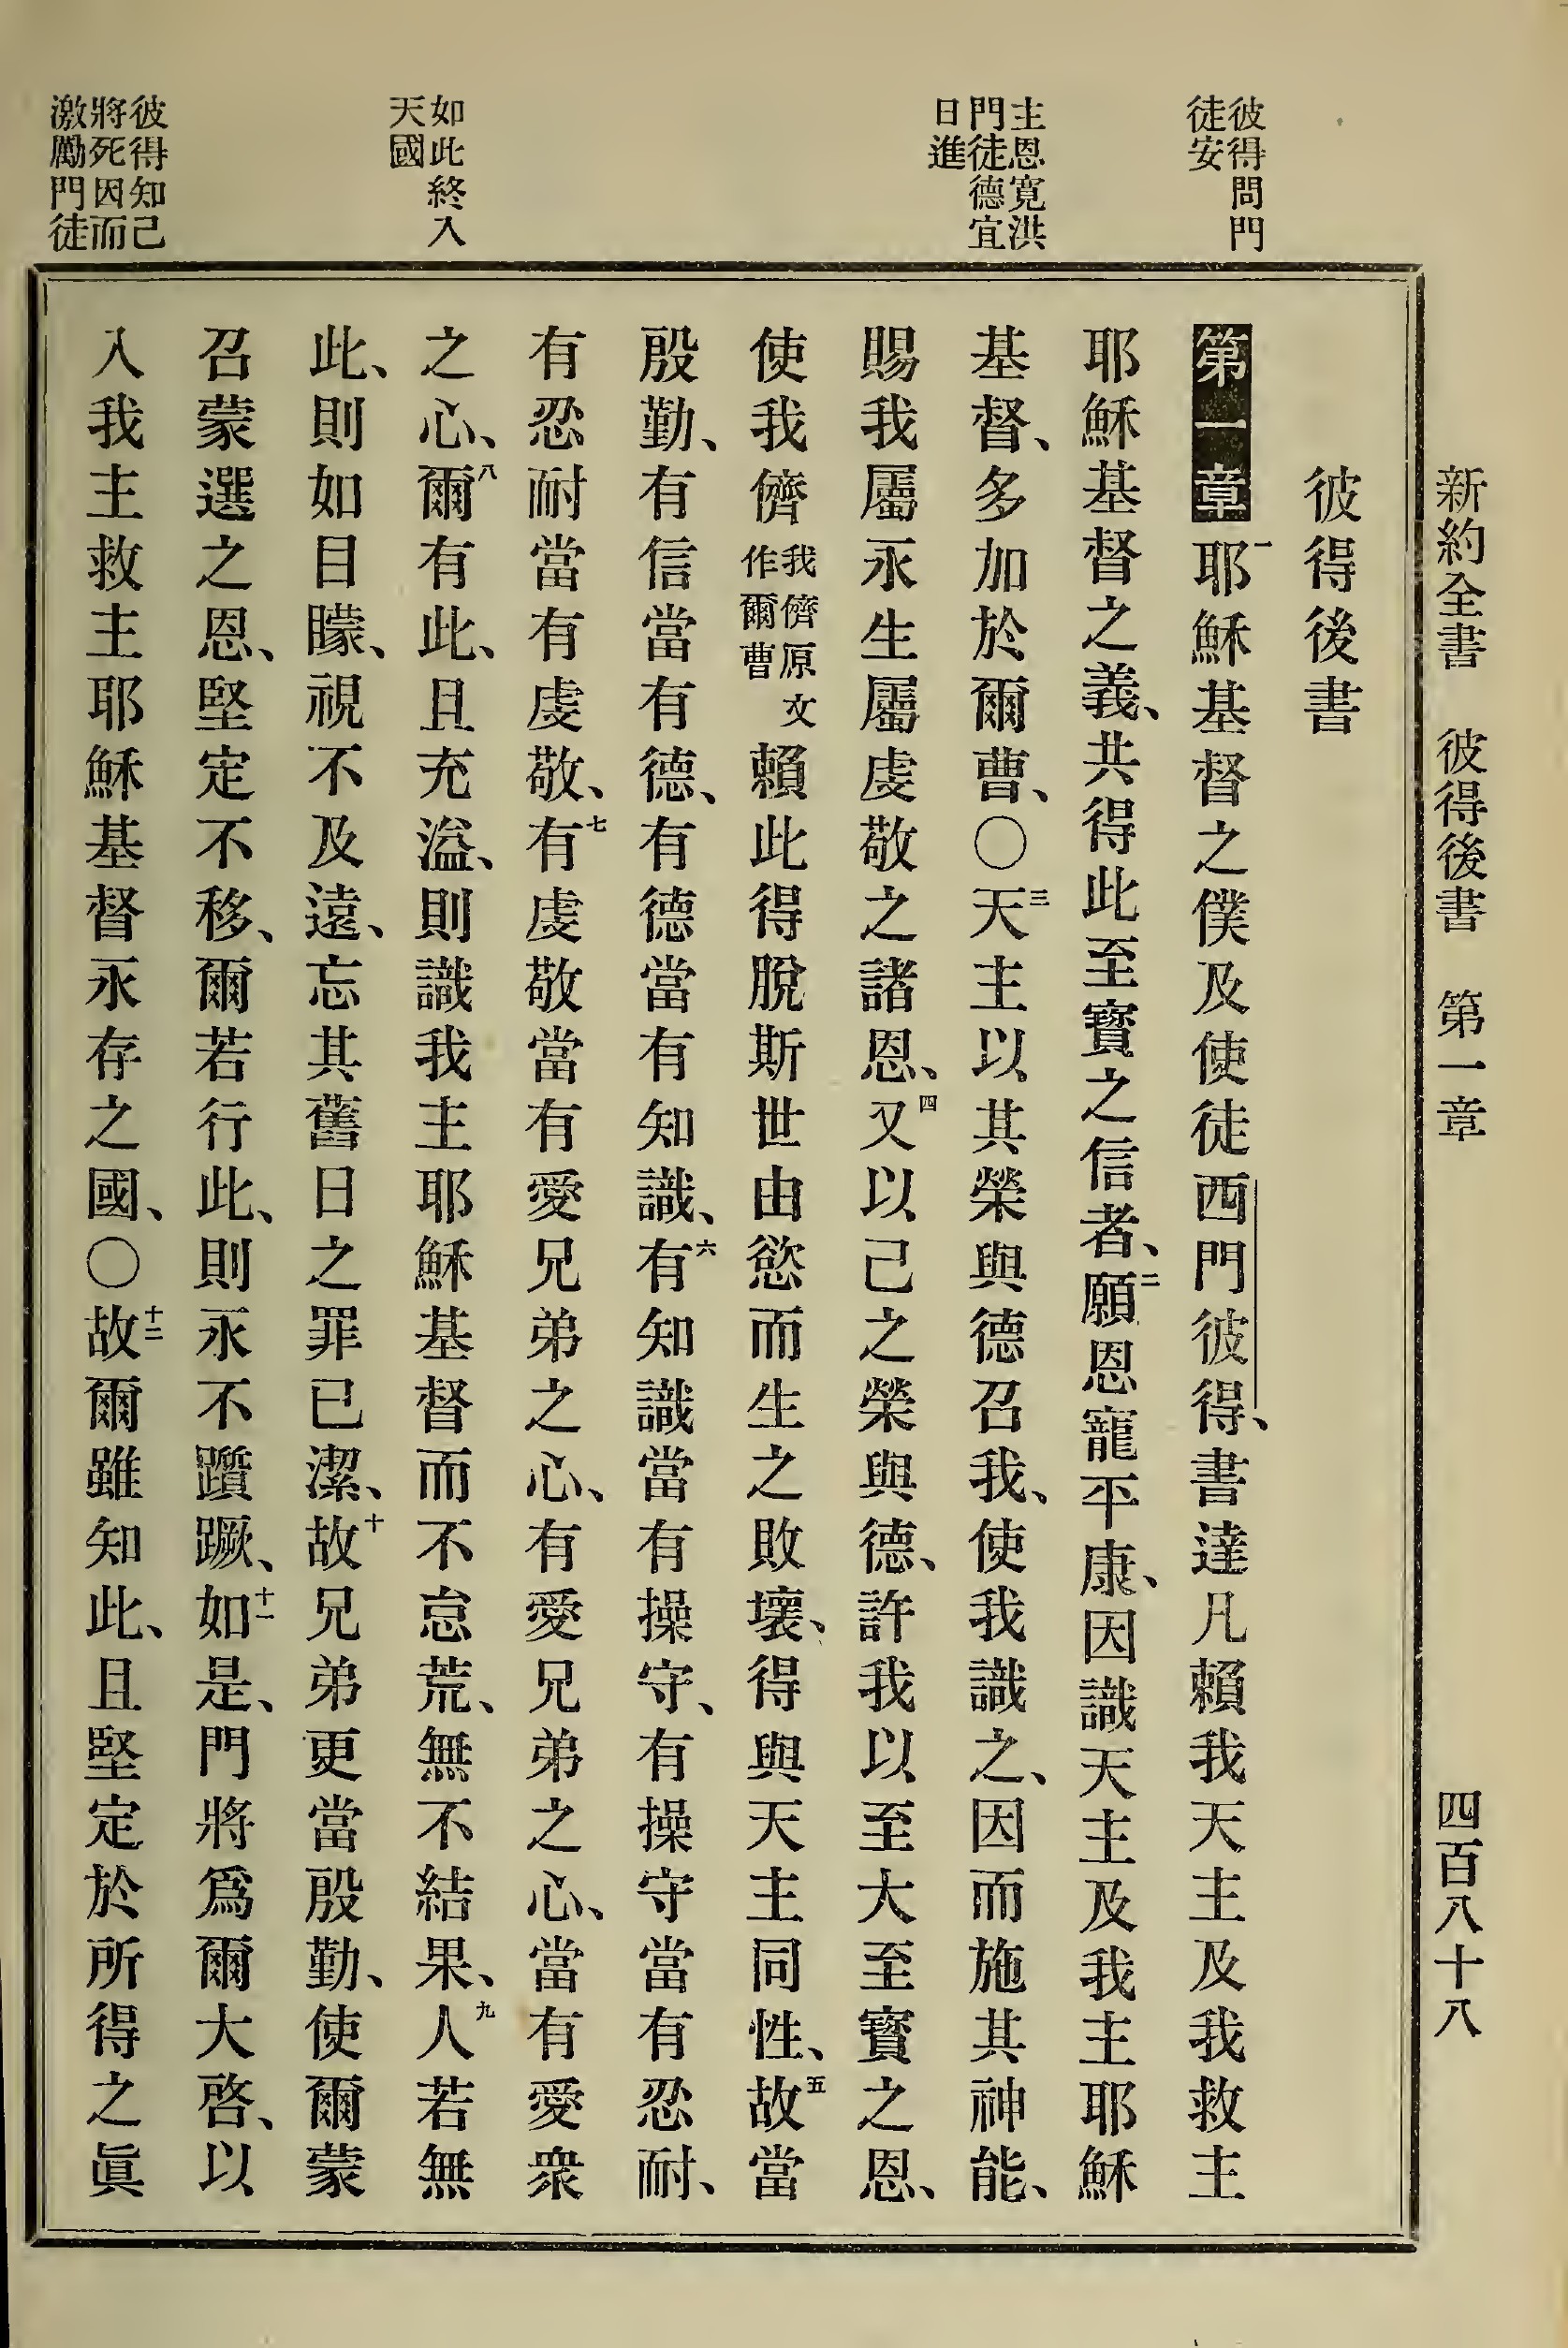 新約全書　彼得後書　第一章　四百八十八
彼得問門
徒安
主恩寬洪
門徒德宜
日進
如此終入
天國
彼得知己
將死因而
激勵門徒
彼得後書
第一章 一耶穌基督之僕及使徒西門彼得、書達凡賴我天主及我救主
耶穌基督之義、共得此至寶之信者、二願恩寵平康、因識天主及我主耶穌
基督、多加於爾曹、〇三天主以其榮與德召我、使我識之、因而施其神能、
賜我屬永生屬虔敬之諸恩、四又以己之榮與德、許我以至大至寶之恩、
使我儕我儕原文作爾曹賴此得脫斯世由慾而生之敗壞、得與天主同性、五故當
殷勤、有信當有德、有德當有知識、六有知識當有操守、有操守當有忍耐、
有忍耐當有虔敬、七有虔敬當有愛兄弟之心、有愛兄弟之心、當有愛衆
之心、八爾有此、且充溢、則識我主耶穌基督而不怠荒、無不結果、九人若無
此、則如目矇、視不及遠、忘其舊日之罪已潔、十故兄弟更當殷勤、使爾蒙
召蒙選之恩、堅定不移、爾若行此、則永不躓蹶、十一如是、門將爲爾大啓、以
入我主救主耶穌基督永存之國、〇十二故爾雖知此、且堅定於所得之眞